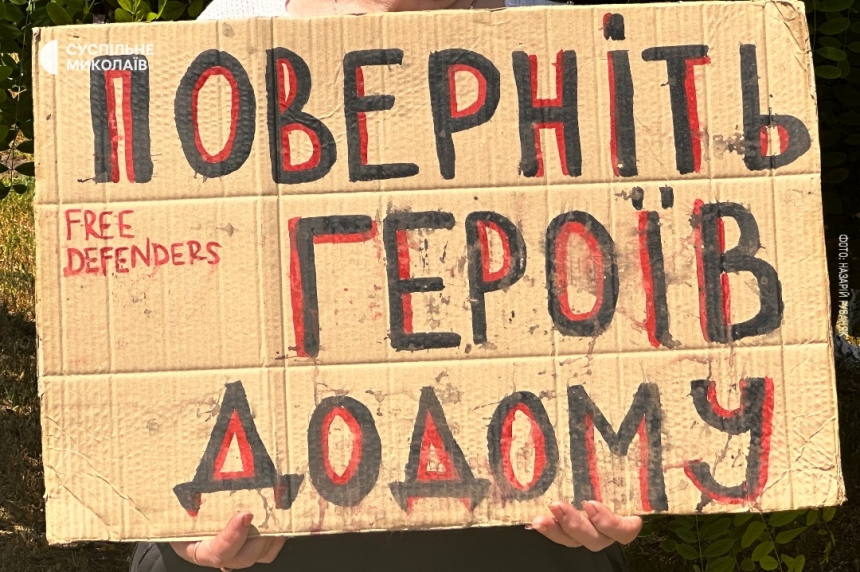 СУСПІЛЬНЕ
МИКОЛАЇВ
ПОВЕРНІТЬ
FREE
DEFENDERS
ГЕРОЇВ
ДОДОМУ
ФОТО: НАЗАРІЙ